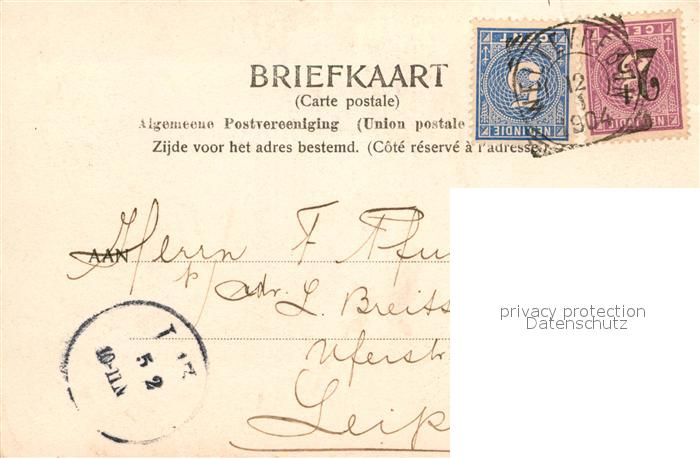 BRIEFKAART
(Carte postale)
Algemeene Postvereeniging (Union postale
Zijde voor het adres bestemd. (Côté réservé à l'adresse.)
CENT
5
NED. INDIE
CENT
2½
NED. INDIE
12
1
904
AAN Herrn F
adr. L. Breits
Uferstr
Leip
5 2
10-11N
privacy protection
Datenschutz